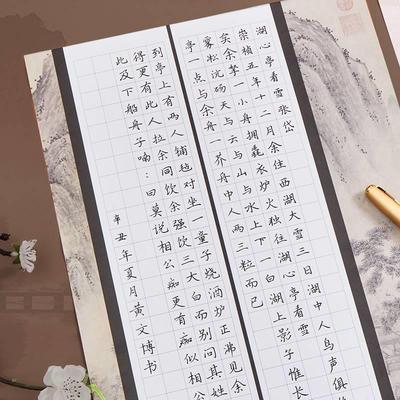 湖心亭看雪张岱
崇祯五年十二月余住西湖大雪三日湖中人鸟声俱
余拏一小舟拥毳衣炉火独往湖心亭看雪
雾凇沆砀天与云与山与水上下一白湖上影子惟长
亭一点与余舟一芥舟中人两三粒而已
到亭上有两人铺毡对坐一童子烧酒炉正沸见余
得更有此人拉余同饮余强饮三大白而别问其姓
此及下船舟子喃:曰莫说相公痴更有痴似相公
辛丑年夏月黄文博书